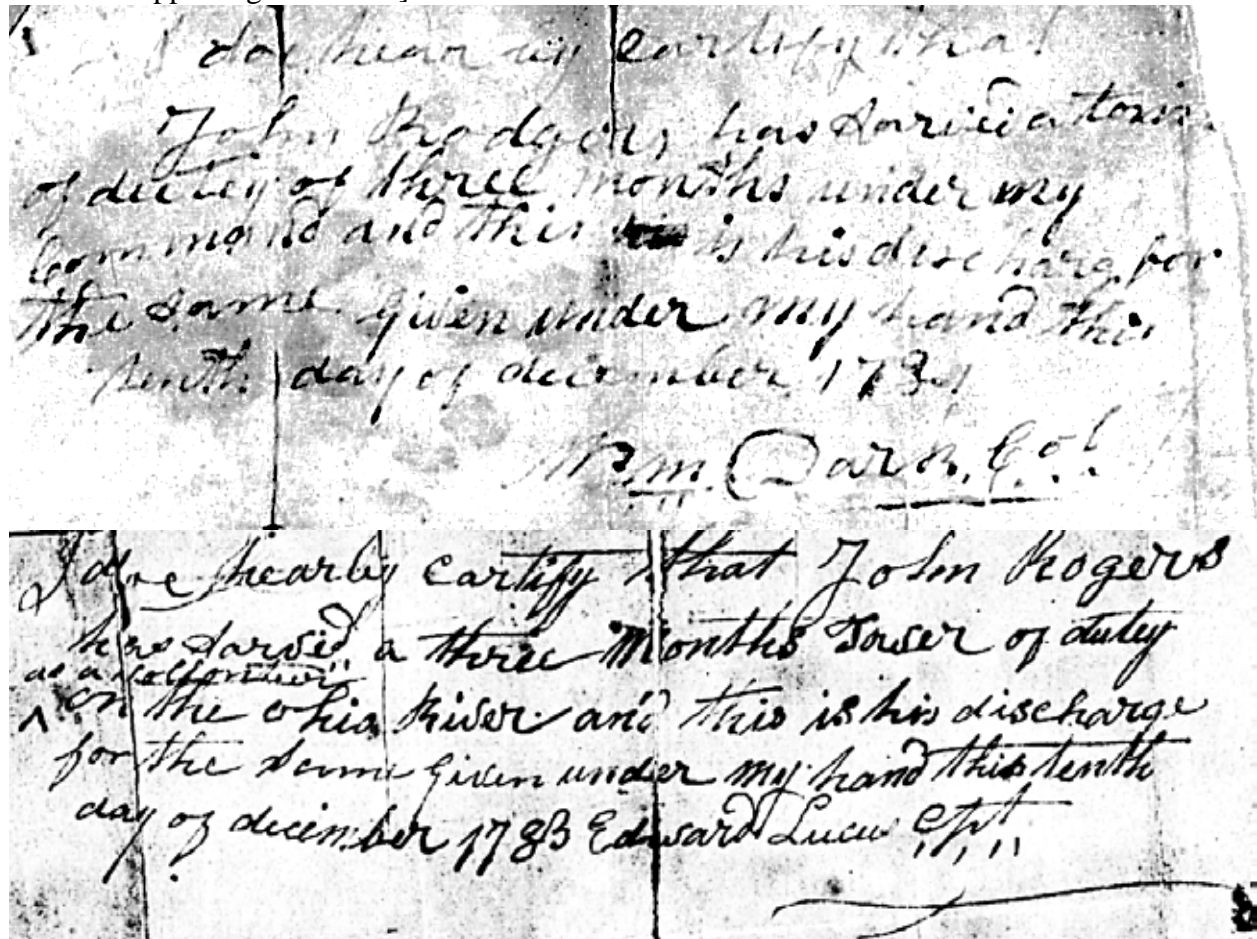 I doe hear by cartify that
John Rodgers has sarvid a
of dutey of three months under my
Command and this is his discharg for
the same Given under my hand this
tenth day of december 178
Wm. Dark. Col.
I doe hearby cartify that John Rogers
has sarvid a three Months Tower of dutey
as a
^ on the ohio River and this is his discharge
for the same Given under my hand this tenth
day of december 1783 Edward Lucus Cpt